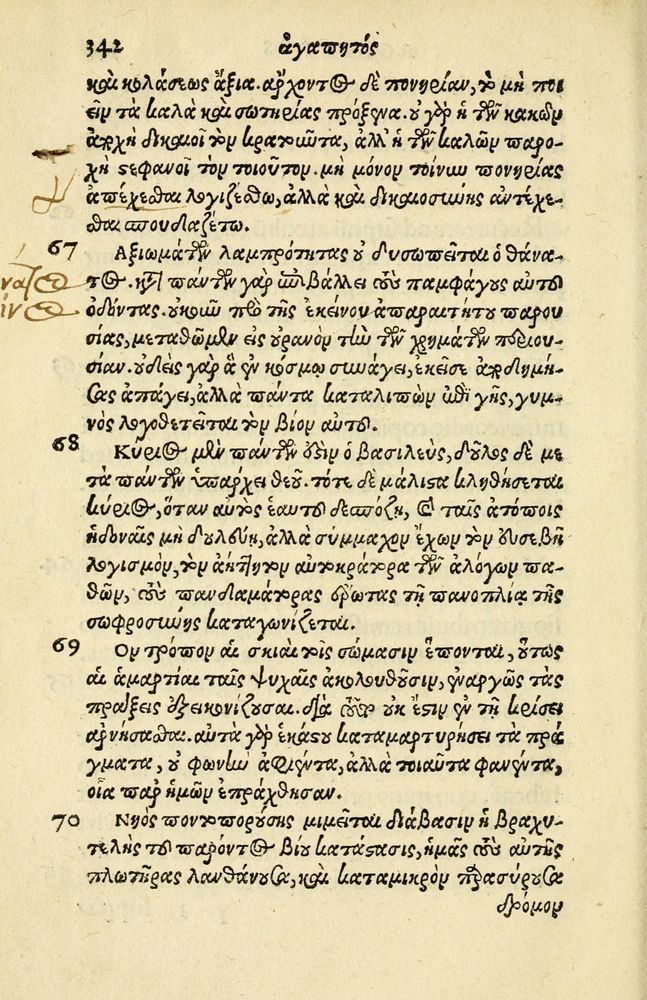 342 ἀγαπητός
καὶ κολάσεως ἄξια. ἄρχοντος δὲ πονηρίαν, τὸ μὴ ποι
εῖν τὰ καλὰ καὶ σωτηρίας πρόξενα. οὐ γὰρ ἡ τῶν κακῶν
ἀρχὴ δικαιοῖ τὸν κρατοῦντα, ἀλλ' ἡ τῶν καλῶν παρο-
χὴ στεφανοῖ τὸν τοιοῦτον. μὴ μόνον τοίνυν πονηρίας
ἀπέχεσθαι λογιζέσθω, ἀλλὰ καὶ δικαιοσύνης ἀντέχε-
σθαι σπουδαζέτω.
67 Αξιωμάτων λαμπρότητας οὐ δυσωπεῖται ὁ θάνα-
τος. κατὰ πάντων γὰρ ἐπιβάλλει τοὺς παμφάγους αὐτοῦ
ὀδόντας. οὐκοῦν πρὸ τῆς ἐκείνου ἀπαραιτήτου παρου
σίας, μεταθῶμεν εἰς οὐρανὸν τὴν τῶν χρημάτων περιου-
σίαν. οὐδεὶς γὰρ ἃ ἐν κόσμῳ συνάγει, ἐκεῖσε ἀποδημή-
σας ἀπάγει, ἀλλὰ πάντα καταλιπὼν ἐπὶ γῆς, γυμ-
νὸς λογοθετεῖται τὸν βίον αὐτοῦ.
68 Κύριος μὲν πάντων ἐστὶν ὁ βασιλεὺς, δοῦλος δὲ με
τὰ πάντων ὑπάρχει θεοῦ. τότε δὲ μάλιστα κληθήσεται
κύριος, ὅταν αὐτὸς ἑαυτοῦ δεσπόζῃ, καὶ ταῖς ἀτόποις
ἡδοναῖς μὴ δουλεύῃ, ἀλλὰ σύμμαχον ἔχων τὸν εὐσεβῆ
λογισμὸν, τὸν ἀήττητον αὐτοκράτορα τῶν ἀλόγων πα-
θῶν, τοὺς πανδαμάτορας ἔρωτας τῇ πανοπλίᾳ τῆς
σωφροσύνης καταγωνίζεται.
69 Ον τρόπον αἱ σκιαὶ τοῖς σώμασιν ἕπονται, οὕτως
αἱ ἁμαρτίαι ταῖς ψυχαῖς ἀκολουθοῦσιν, ἐναργῶς τὰς
πράξεις ἐξεικονίζουσαι. διὰ τοῦτο οὐκ ἔστιν ἐν τῇ κρίσει
ἀρνήσασθαι. αὐτὰ γὰρ ἑκάστου καταμαρτυρήσει τὰ πρά
γματα, οὐ φωνὴν ἀφιέντα, ἀλλὰ τοιαῦτα φανέντα,
οἷα παρ' ἡμῶν ἐπράχθησαν.
70 Νηὸς ποντοπορούσης μιμεῖται διάβασιν ἡ βραχυ-
τελὴς τοῦ παρόντος βίου κατάστασις, ἡμᾶς τοὺς αὐτῆς
πλωτῆρας λανθάνουσα, καὶ καταμικρὸν παρασύρουσα
δρόμον